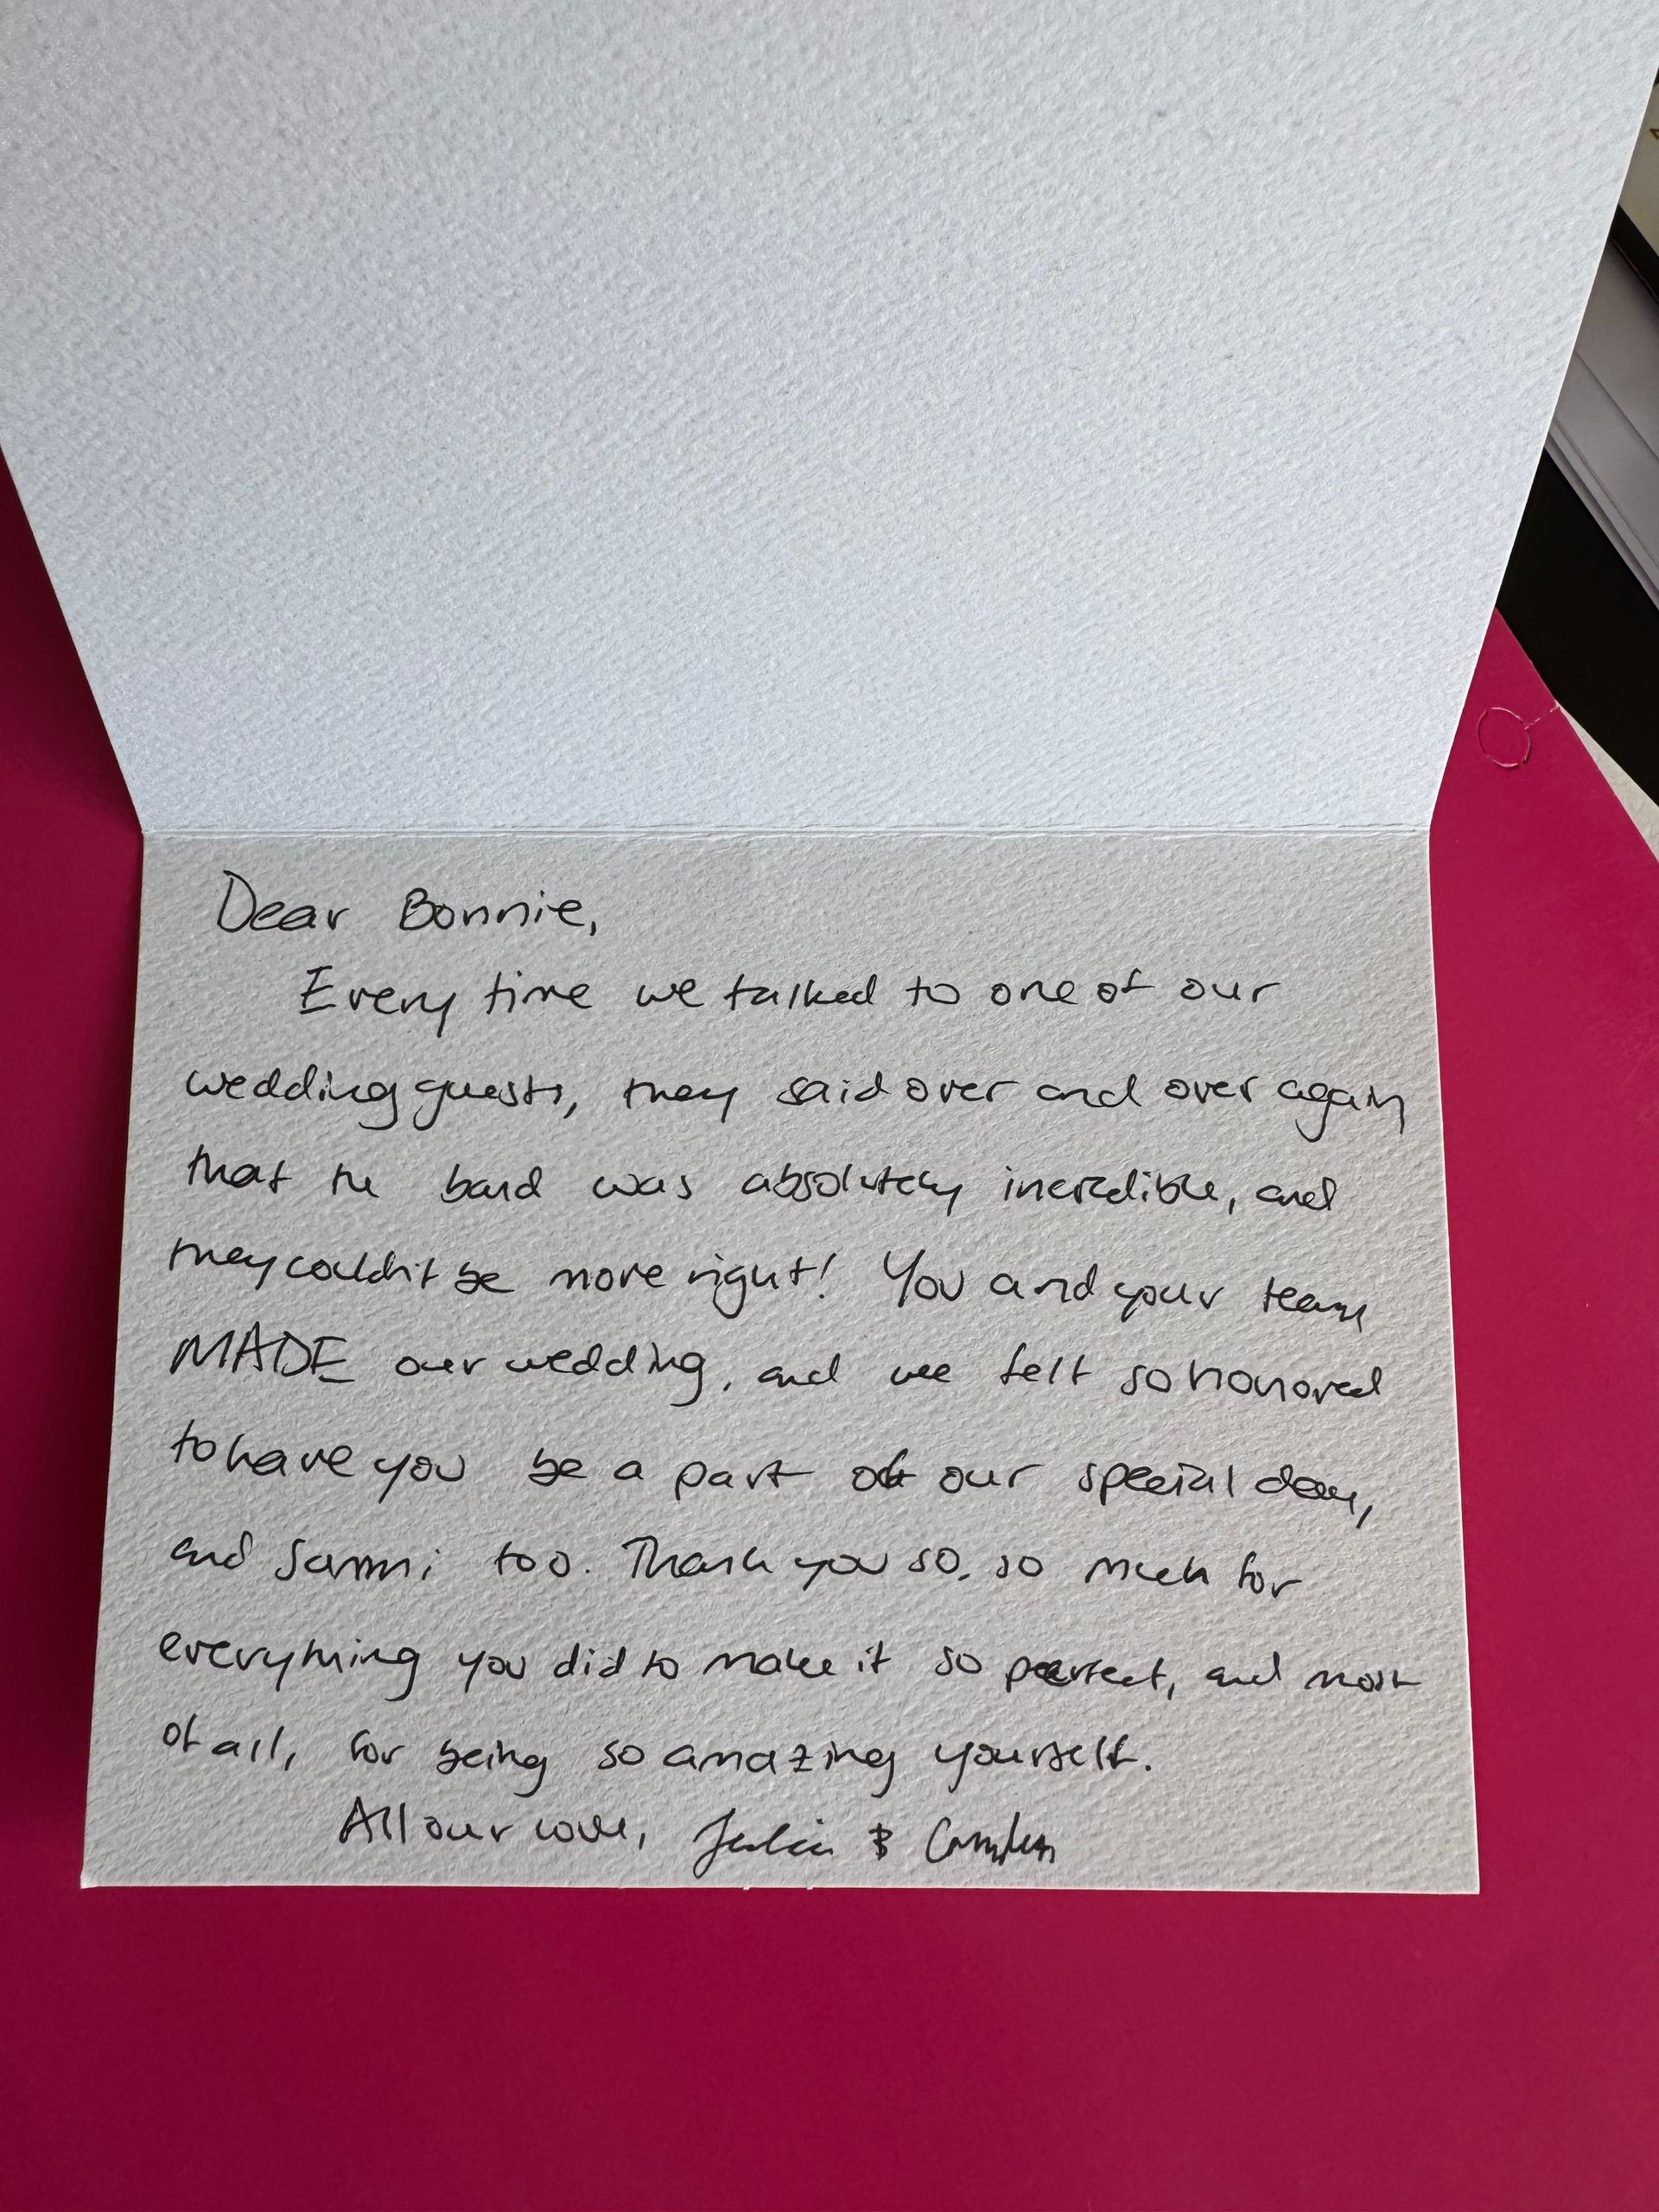 Dear Bonnie,
Every time we talked to one of our
wedding guests, they said over and over again
that the band was absolutely incredible, and
they couldn't be more right! You and your team
MADE our wedding, and we felt so honored
to have you be a part of our special day,
and Sammi too. Thank you so, so much for
everything you did to make it so perfect, and most
of all, for being so amazing yourself.
All our love, Julia & Camden